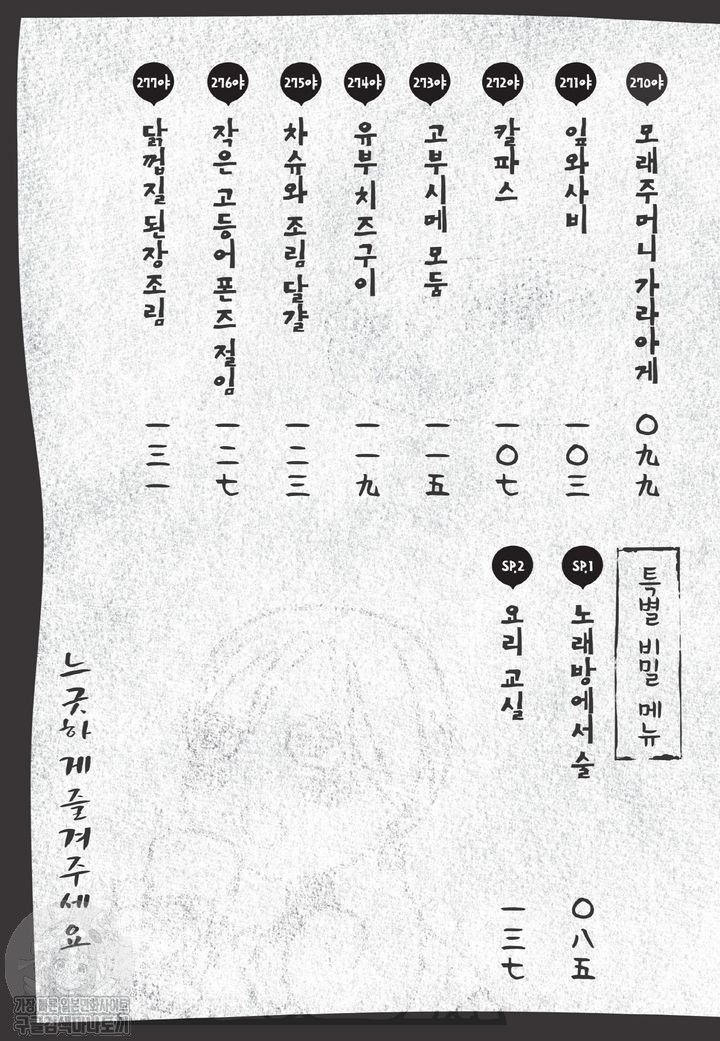 270야
모래주머니 가라아게
〇九九
271야
잎와사비
一〇三
272야
칼파스
一〇七
273야
고부시메 모둠
一一五
274야
유부 치즈구이
一一九
275야
차슈와 조림 달걀
一二三
276야
작은 고등어 폰즈 절임
一二七
277야
닭껍질 된장조림
一三一
특별 비밀 메뉴
SP.1
노래방에서 술
〇八五
SP.2
요리 교실
一三七
느긋하게 즐겨주세요
가장 빠른 일본만화사이트
구글검색 마나토끼